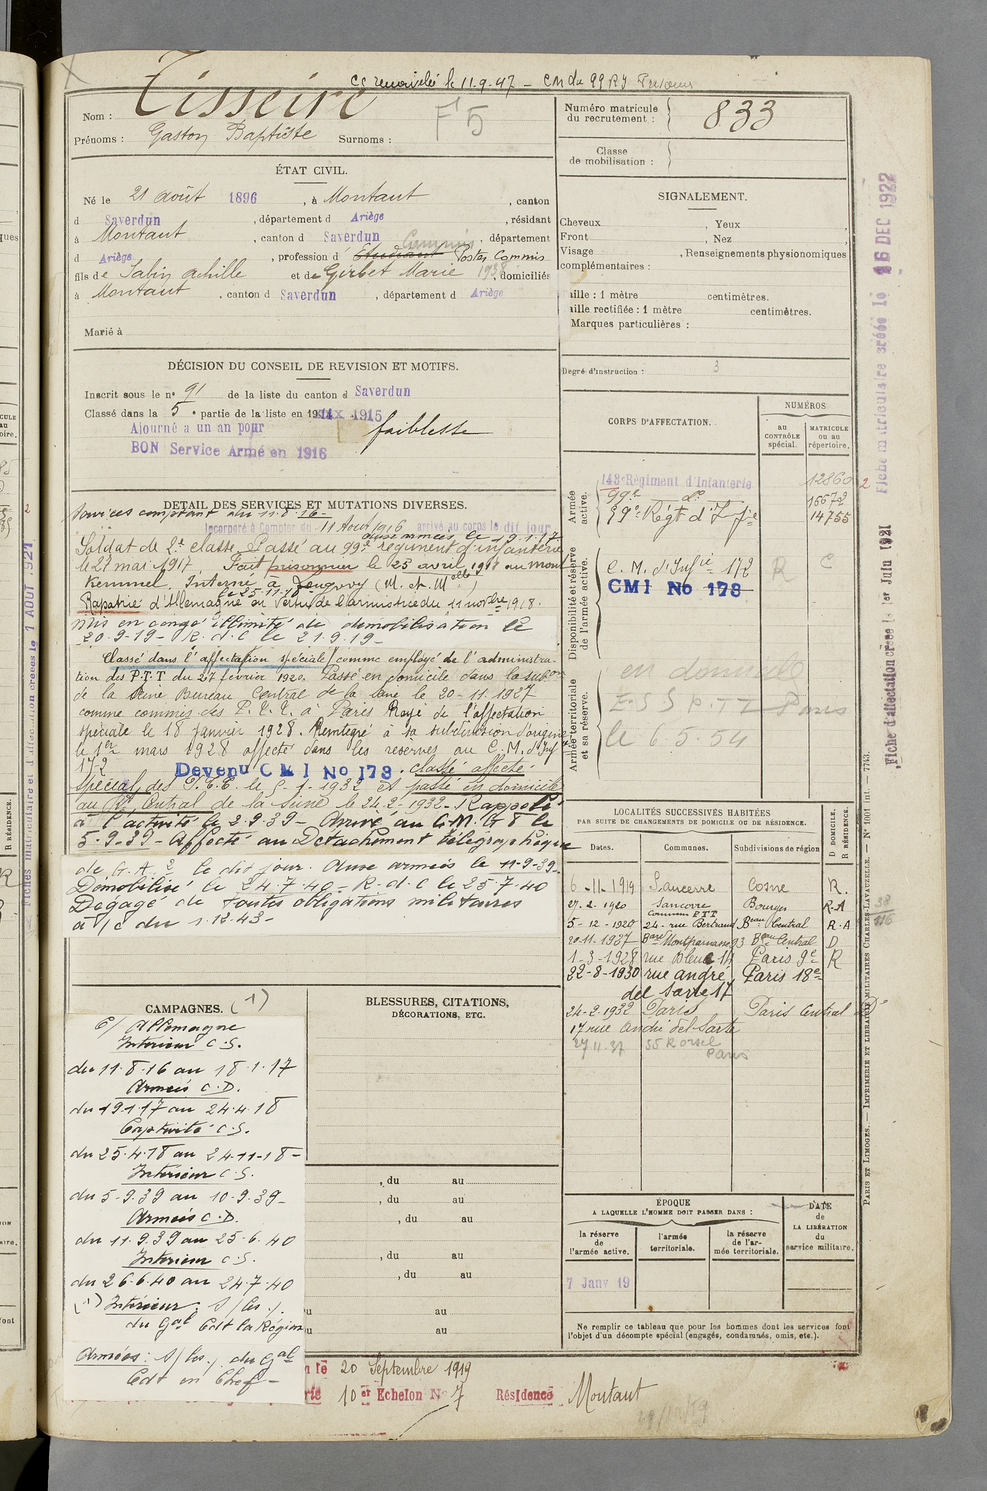 cc renouvelé le 11.9.47 - CM du 99 RI
Nom : Tisseire
Prénoms : Gaston Baptiste Surnoms :
F 5
Numéro matricule
du recrutement : 833
Classe
de mobilisation :
ÉTAT CIVIL.
Né le 21 août 1896, à Montaut, canton
d Saverdun, département d Ariège, résidant
à Montaut, canton d Saverdun, département
d Ariège, profession d Etudiant Postes Commis
Commis
fils de Sabin Achille et de Gerbet Marie 1938, domiciliés
à Montaut, canton d Saverdun, département d Ariège
Marié à
SIGNALEMENT.
Cheveux , Yeux ,
Front , Nez ,
Visage , Renseignements physionomiques
complémentaires :
aille : 1 mètre centimètres.
aille rectifiée : 1 mètre centimètres.
Marques particulières :
Degré d'instruction : 3
DÉCISION DU CONSEIL DE REVISION ET MOTIFS.
Inscrit sous le nº 91 de la liste du canton d Saverdun
Classé dans la 5e partie de la liste en 1915
Ajourné a un an pour faiblesse
BON Service Armé en 1916
DÉTAIL DES SERVICES ET MUTATIONS DIVERSES.
services comptant du 11-8-16 -
Incorporé à Compter du 11 Août 1916 arrivé au corps le dit jour
aux armées le 19.1.17
Soldat de 2e classe Passé au 99e régiment d'infanterie
le 21 mai 1917. Fait prisonnier le 25 avril 1918 au mont
Kemmel. Interné à
le 25-11-18
Rapatrié d'Allemagne en vertu de l'armistice du 11 novbre 1918.
Mis en congé illimité de démobilisation le
20-9-19 - R.d.C le 21.9.19 -
Classé dans l'affectation spéciale comme employé de l'administra-
tion des P.T.T du 27 février 1920. Passé en domicile dans la subon
de la Seine Bureau Central de la Seine le 20-11-1927
comme commis des P.T.T. à Paris Rayé de l'affectation
spéciale le 18 janvier 1928. Réintégré à sa subdivision d'origine
le 1er mars 1928 affecté dans les réserves au C.M. d'Inf
172 Devenu CMI No 178. classé affecté
spécial des P.T.T. le 5-1-1932 et passé en domicile
au Rt Central de la Seine le 24-2-1932 - Rappelé
à l'activité le 2.9.39 - Arrivé au C.M. G 8 le
5-9-39 - Affecté au Détachement télégraphique
de G.A. 2 le dit jour Aux armées le 11-9-39 -
Démobilisé le 24-7-40 - R.d.C le 25-7-40
Dégagé de toutes obligations militaires
à /c du 1.12.43 -
CORPS D'AFFECTATION.
NUMÉROS
au
CONTRÔLE
spécial.
MATRICULE
ou au
répertoire.
Armée
active.
143e Régiment d'Infanterie 12860
99e do 15572
99e Régt d'Infie 14755
Disponibilité et réserve
de l'armée active.
C.M. d'Infie 172 R C
CMI No 178
Armée territoriale
et sa réserve.
en domicile
E.S S P.T.T Paris
le 6.5.54
LOCALITÉS SUCCESSIVES HABITÉES
PAR SUITE DE CHANGEMENTS DE DOMICILE OU DE RÉSIDENCE.
D DOMICILE.
R RÉSIDENCE.
Dates. Communes. Subdivisions de région
6-11-1919 Sancerre Cosne R.
27-2-1920 Sancerre Bourges R.A
Commis PTT
5-12-1920 24 - rue Bertrand Beau Central R.A
20-11-1927 Bard Montparnasse 93 Beau Central D
1-3-1928 rue Bleue 14 Paris 9e R
22-8-1930 rue andré Paris 18e
del Sarte 17
24-2-1932 Paris Paris Central D
17 rue André del Sarte
27.11.37 55 R Orsel
Paris
CAMPAGNES. (1)
C/ Allemagne
Intérieur C.S.
du 11.8.16 au 18.1.17
Armées C.D.
du 19.1.17 au 24.4.18
Captivité C.S.
du 25.4.18 au 24-11-18 -
Intérieur C.S.
du 5-9.39 au 10.9.39 -
Armées C.D.
du 11.9.39 au 25.6.40
Intérieur C.S.
du 26.6.40 au 24.7.40
(1) Intérieur : S/les
du Gal Cdt la Région
Armées : S/les du Gal
Cdt en Chef -
BLESSURES, CITATIONS,
DÉCORATIONS, ETC.
, du au
, du au
, du au
, du au
, du au
u au
u au
ÉPOQUE
A LAQUELLE L'HOMME DOIT PASSER DANS :
la réserve
de
l'armée active.
l'armée
territoriale.
la réserve
de l'ar-
mée territoriale.
DATE
de
LA LIBÉRATION
du
service militaire.
7 Janv 19
Ne remplir ce tableau que pour les hommes dont les services font
l'objet d'un décompte spécial (engagés, condamnés, omis, etc.).
n le 20 Septembre 1919
10 et Echelon No 7 Résidence Montaut
Fiche matriculaire créée le 16 DEC 1922
Fiche d'affectation créée le 1er Juin 1921
PARIS ET LIMOGES. — IMPRIMERIE ET LIBRAIRIE MILITAIRES CHARLES-LAVAUZELLE. — Nº 1001 int. — 7743.